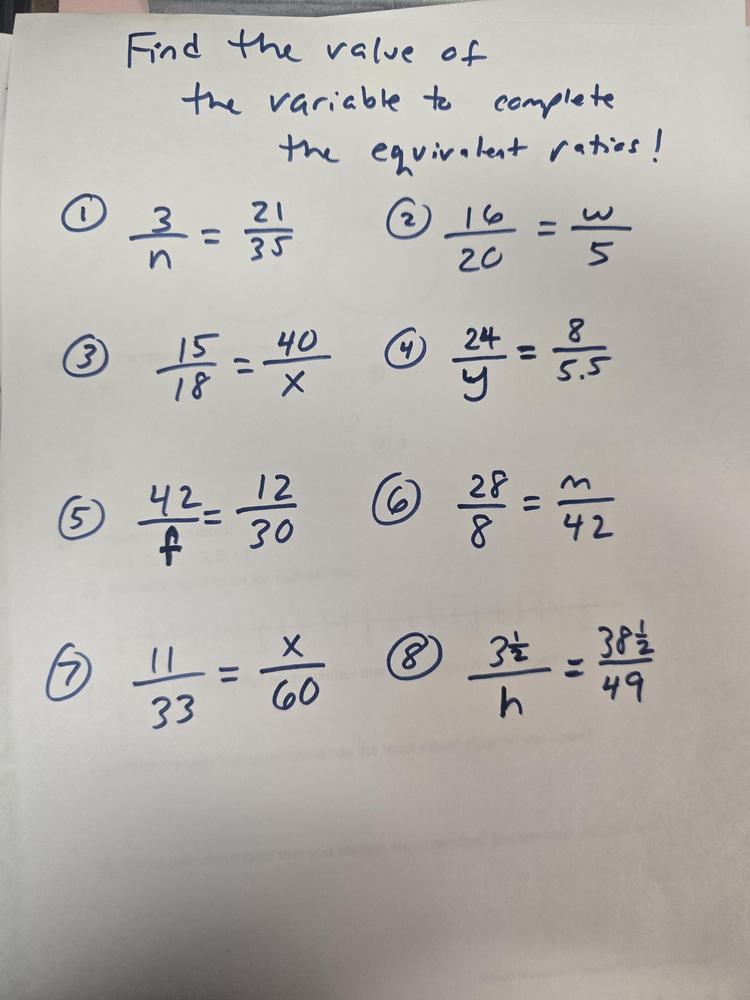 Find the value of
the variable to complete
the equivalent ratios!
① 3/n = 21/35 ② 16/20 = w/5
③ 15/18 = 40/x ④ 24/y = 8/5.5
⑤ 42/f = 12/30 ⑥ 28/8 = m/42
⑦ 11/33 = x/60 ⑧ 3½/h = 38½/49